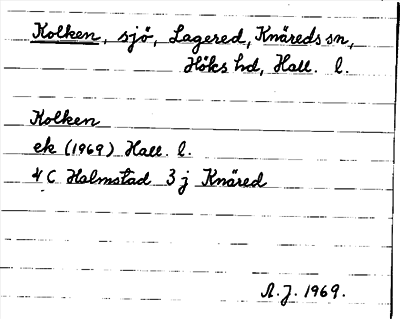 Kolken, sjö, Lagered, Knäreds sn,
Höks hd, Hall. l.
Kolken
ek (1969) Hall. l.
4 C Halmstad 3 j Knäred
A.J. 1969.